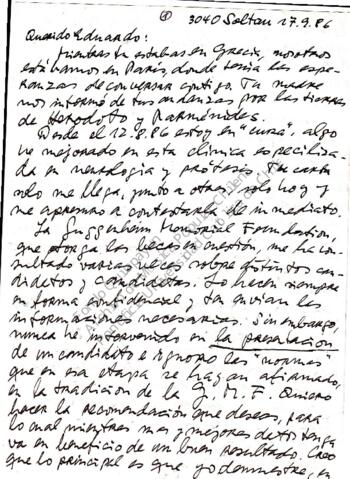 ① 3040 Soltau 17.9.86
Querido Eduardo:
Mientras tu estabas en Grecia, nosotros
estábamos en París, donde tenía las espe-
ranzas de conversar contigo. Tu madre
nos informó de tus andanzas por las tierras
de Herodoto y Parménides.
Desde el 12.8.86 estoy en "cura", algo
he mejorado en esta clínica especiliza-
da en neurología y prótesis. Tu carta
solo me llega, junto a otras, solo hoy y
me apresuro a contestarla de inmediato.
La Guggenheim Memorial Foundation,
que otorga las becas en cuestión, me ha con-
sultado varias veces sobre distintos can-
didatos y candidatas. Lo hacen siempre
en forma confidencial y te envían las
informaciones necesarias. Sin embargo,
nunca he intervenido en la presentación
de un candidato e ignoro las "normas"
que en esa etapa se hayan afirmado,
en la tradición de la G.M.F. Quiero
hacer la recomendación que deseas, para
lo cual mientras mas y mejores datos tenga
va en beneficio de un buen resultado. Creo
que lo principal es que yo demuestre, en